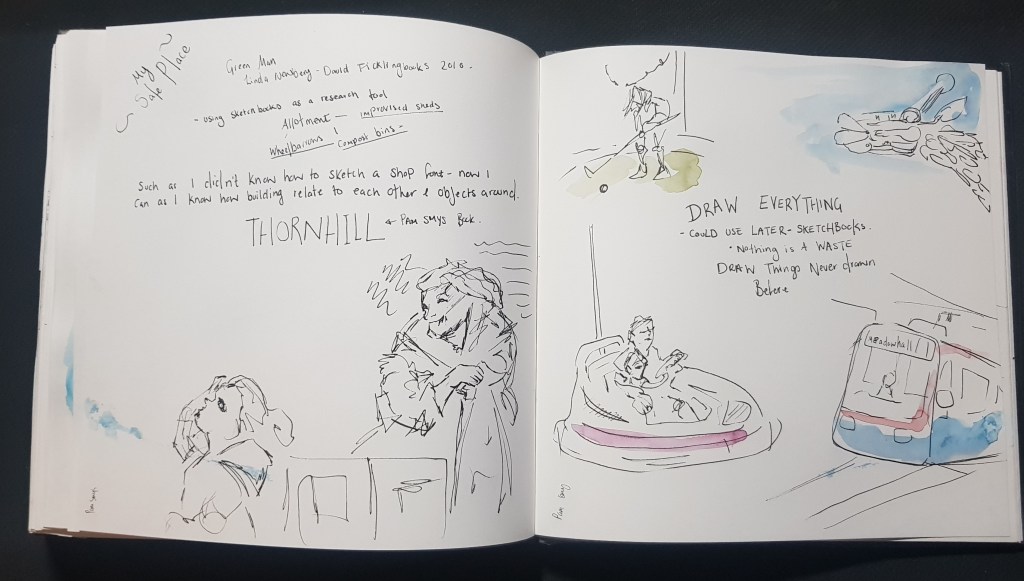 My
Safe Place
Green Man
Linda Newbery - David Ficklingbooks 2010.
- using sketchbooks as a research tool
Allotment — improvised sheds
Wheelbarrows / compost bins -
Such as I didn't know how to sketch a shop font - now I
can as I know how building relate to each other & objects around.
THORNHILL ← PAM SMYS Book.
Pam Smys
DRAW EVERYTHING
- COULD USE LATER - SKETCHBOOKS.
• Nothing is A WASTE
DRAW Things Never drawn
Before
meadowhall
Pam Smy